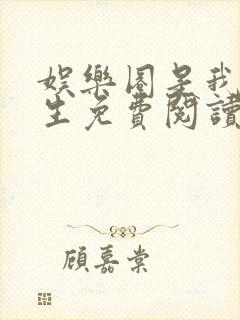 娛樂圈是我
生免費閱讀
顧嘉棠